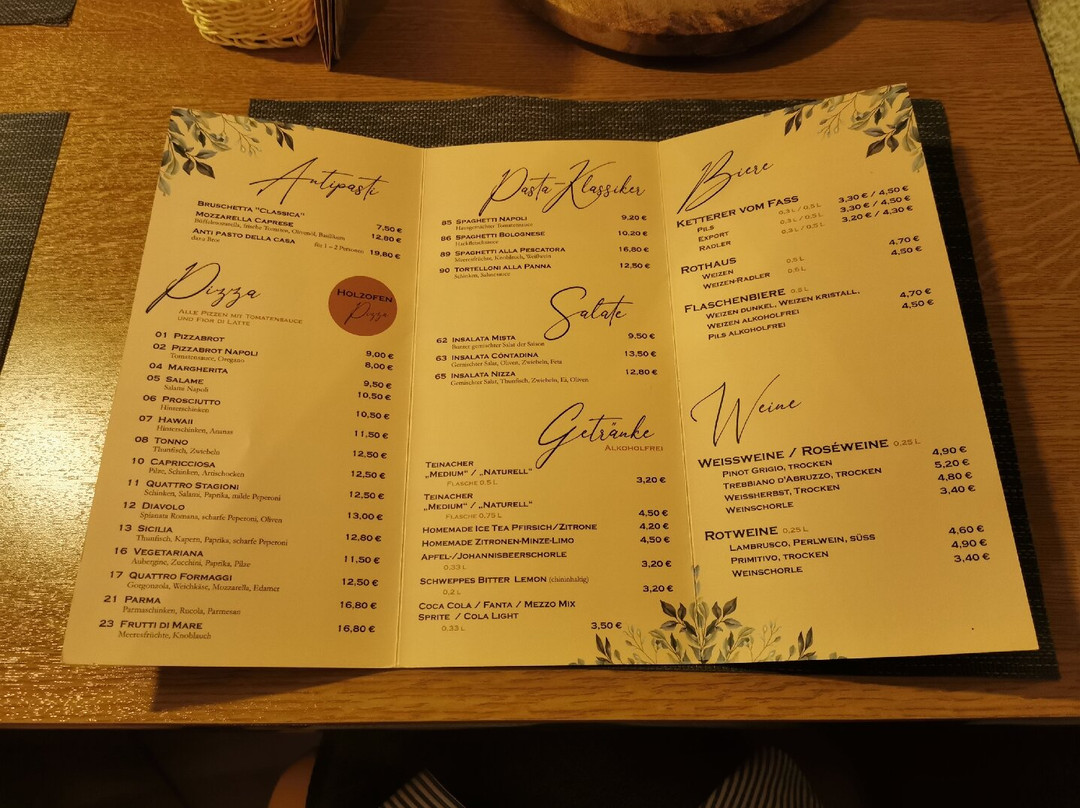 Antipasti
Bruschetta "Classica" 7,50 €
Mozzarella Caprese 12,80 €
Büffelmozzarella, frische Tomaten, Olivenöl, Basilikum
Anti Pasto della Casa für 1 – 2 Personen 19,80 €
dazu Brot
Pizza
Alle Pizzen mit Tomatensauce
und Fior di Latte
Holzofen
Pizza
01 Pizzabrot 9,00 €
02 Pizzabrot Napoli 8,00 €
Tomatensauce, Oregano
04 Margherita 9,50 €
05 Salame 10,50 €
Salami Napoli
06 Prosciutto 10,50 €
Hinterschinken
07 Hawaii 11,50 €
Hinterschinken, Ananas
08 Tonno 12,50 €
Thunfisch, Zwiebeln
10 Capricciosa 12,50 €
Pilze, Schinken, Artischocken
11 Quattro Stagioni 12,50 €
Schinken, Salami, Paprika, milde Peperoni
12 Diavolo 13,00 €
Spianata Romana, scharfe Peperoni, Oliven
13 Sicilia 12,80 €
Thunfisch, Kapern, Paprika, scharfe Peperoni
16 Vegetariana 11,50 €
Aubergine, Zucchini, Paprika, Pilze
17 Quattro Formaggi 12,50 €
Gorgonzola, Weichkäse, Mozzarella, Edamer
21 Parma 16,80 €
Parmaschinken, Rucola, Parmesan
23 Frutti di Mare 16,80 €
Meeresfrüchte, Knoblauch
Pasta-Klassiker
85 Spaghetti Napoli 9,20 €
Hausgemachter Tomatensauce
86 Spaghetti Bolognese 10,20 €
Hackfleischsauce
89 Spaghetti alla Pescatora 16,80 €
Meeresfrüchte, Knoblauch, Weißwein
90 Tortelloni alla Panna 12,50 €
Schinken, Sahnesauce
Salate
62 Insalata Mista 9,50 €
Bunter gemischter Salat der Saison
63 Insalata Contadina 13,50 €
Gemischter Salat, Oliven, Zwiebeln, Feta
65 Insalata Nizza 12,80 €
Gemischter Salat, Thunfisch, Zwiebeln, Ei, Oliven
Getränke
Alkoholfrei
Teinacher
„Medium“ / „Naturell“ 3,20 €
Flasche 0,5 l
Teinacher
„Medium“ / „Naturell“ 4,50 €
Flasche 0,75 l
Homemade Ice Tea Pfirsich/Zitrone 4,20 €
Homemade Zitronen-Minze-Limo 4,50 €
Apfel-/Johannisbeerschorle 3,20 €
0,33 l
Schweppes Bitter Lemon (chininhaltig) 3,20 €
0,2 l
Coca Cola / Fanta / Mezzo Mix
Sprite / Cola Light 3,50 €
0,33 l
Biere
Ketterer vom Fass
Pils 0,3 l / 0,5 l 3,30 € / 4,50 €
Export 0,3 l / 0,5 l 3,30 € / 4,50 €
Radler 0,3 l / 0,5 l 3,20 € / 4,30 €
Rothaus
Weizen 0,5 l 4,70 €
Weizen-Radler 0,5 l 4,50 €
Flaschenbiere 0,5 l
Weizen dunkel, Weizen Kristall, 4,70 €
Weizen alkoholfrei
Pils alkoholfrei 4,50 €
Weine
Weissweine / Roséweine 0,25 l
Pinot Grigio, trocken 4,90 €
Trebbiano d'Abruzzo, trocken 5,20 €
Weissherbst, trocken 4,80 €
Weinschorle 3,40 €
Rotweine 0,25 l
Lambrusco, Perlwein, süss 4,60 €
Primitivo, trocken 4,90 €
Weinschorle 3,40 €